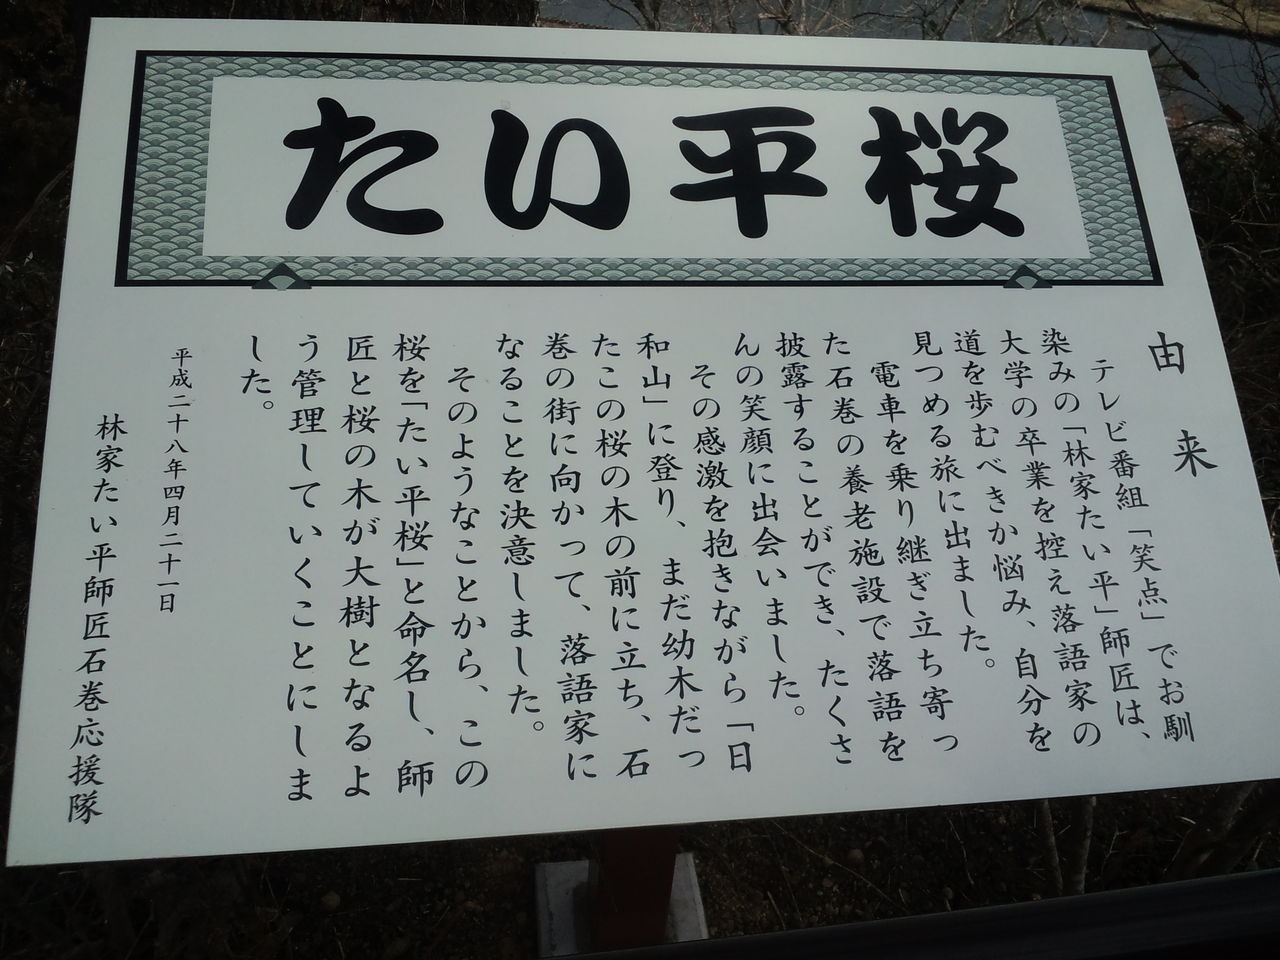 たい平桜
由来
テレビ番組「笑点」でお馴
染みの「林家たい平」師匠は、
大学の卒業を控え落語家の
道を歩むべきか悩み、自分を
見つめる旅に出ました。
電車を乗り継ぎ立ち寄っ
た石巻の養老施設で落語を
披露することができ、たくさ
んの笑顔に出会いました。
その感激を抱きながら「日
和山」に登り、まだ幼木だっ
たこの桜の木の前に立ち、石
巻の街に向かって、落語家に
なることを決意しました。
そのようなことから、この
桜を「たい平桜」と命名し、師
匠と桜の木が大樹となるよ
う管理していくことにしま
した。
平成二十八年四月二十一日
林家たい平師匠石巻応援隊